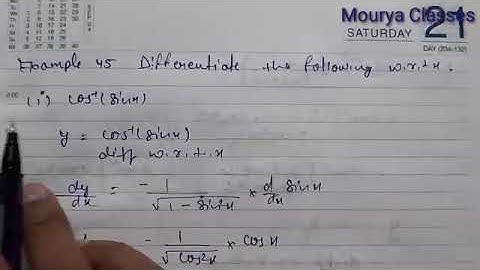 Mourya Classes
21
SATURDAY
DAY (204-132)
Example 45 Differentiate the following w.r.t x.
(i) cos⁻¹(sinx)
y = cos⁻¹(sinx)
diff w.r.t.x
dy/dx = -1/√(1-sin²x) * d/dx sinx
-1/√(cos²x) * cosx